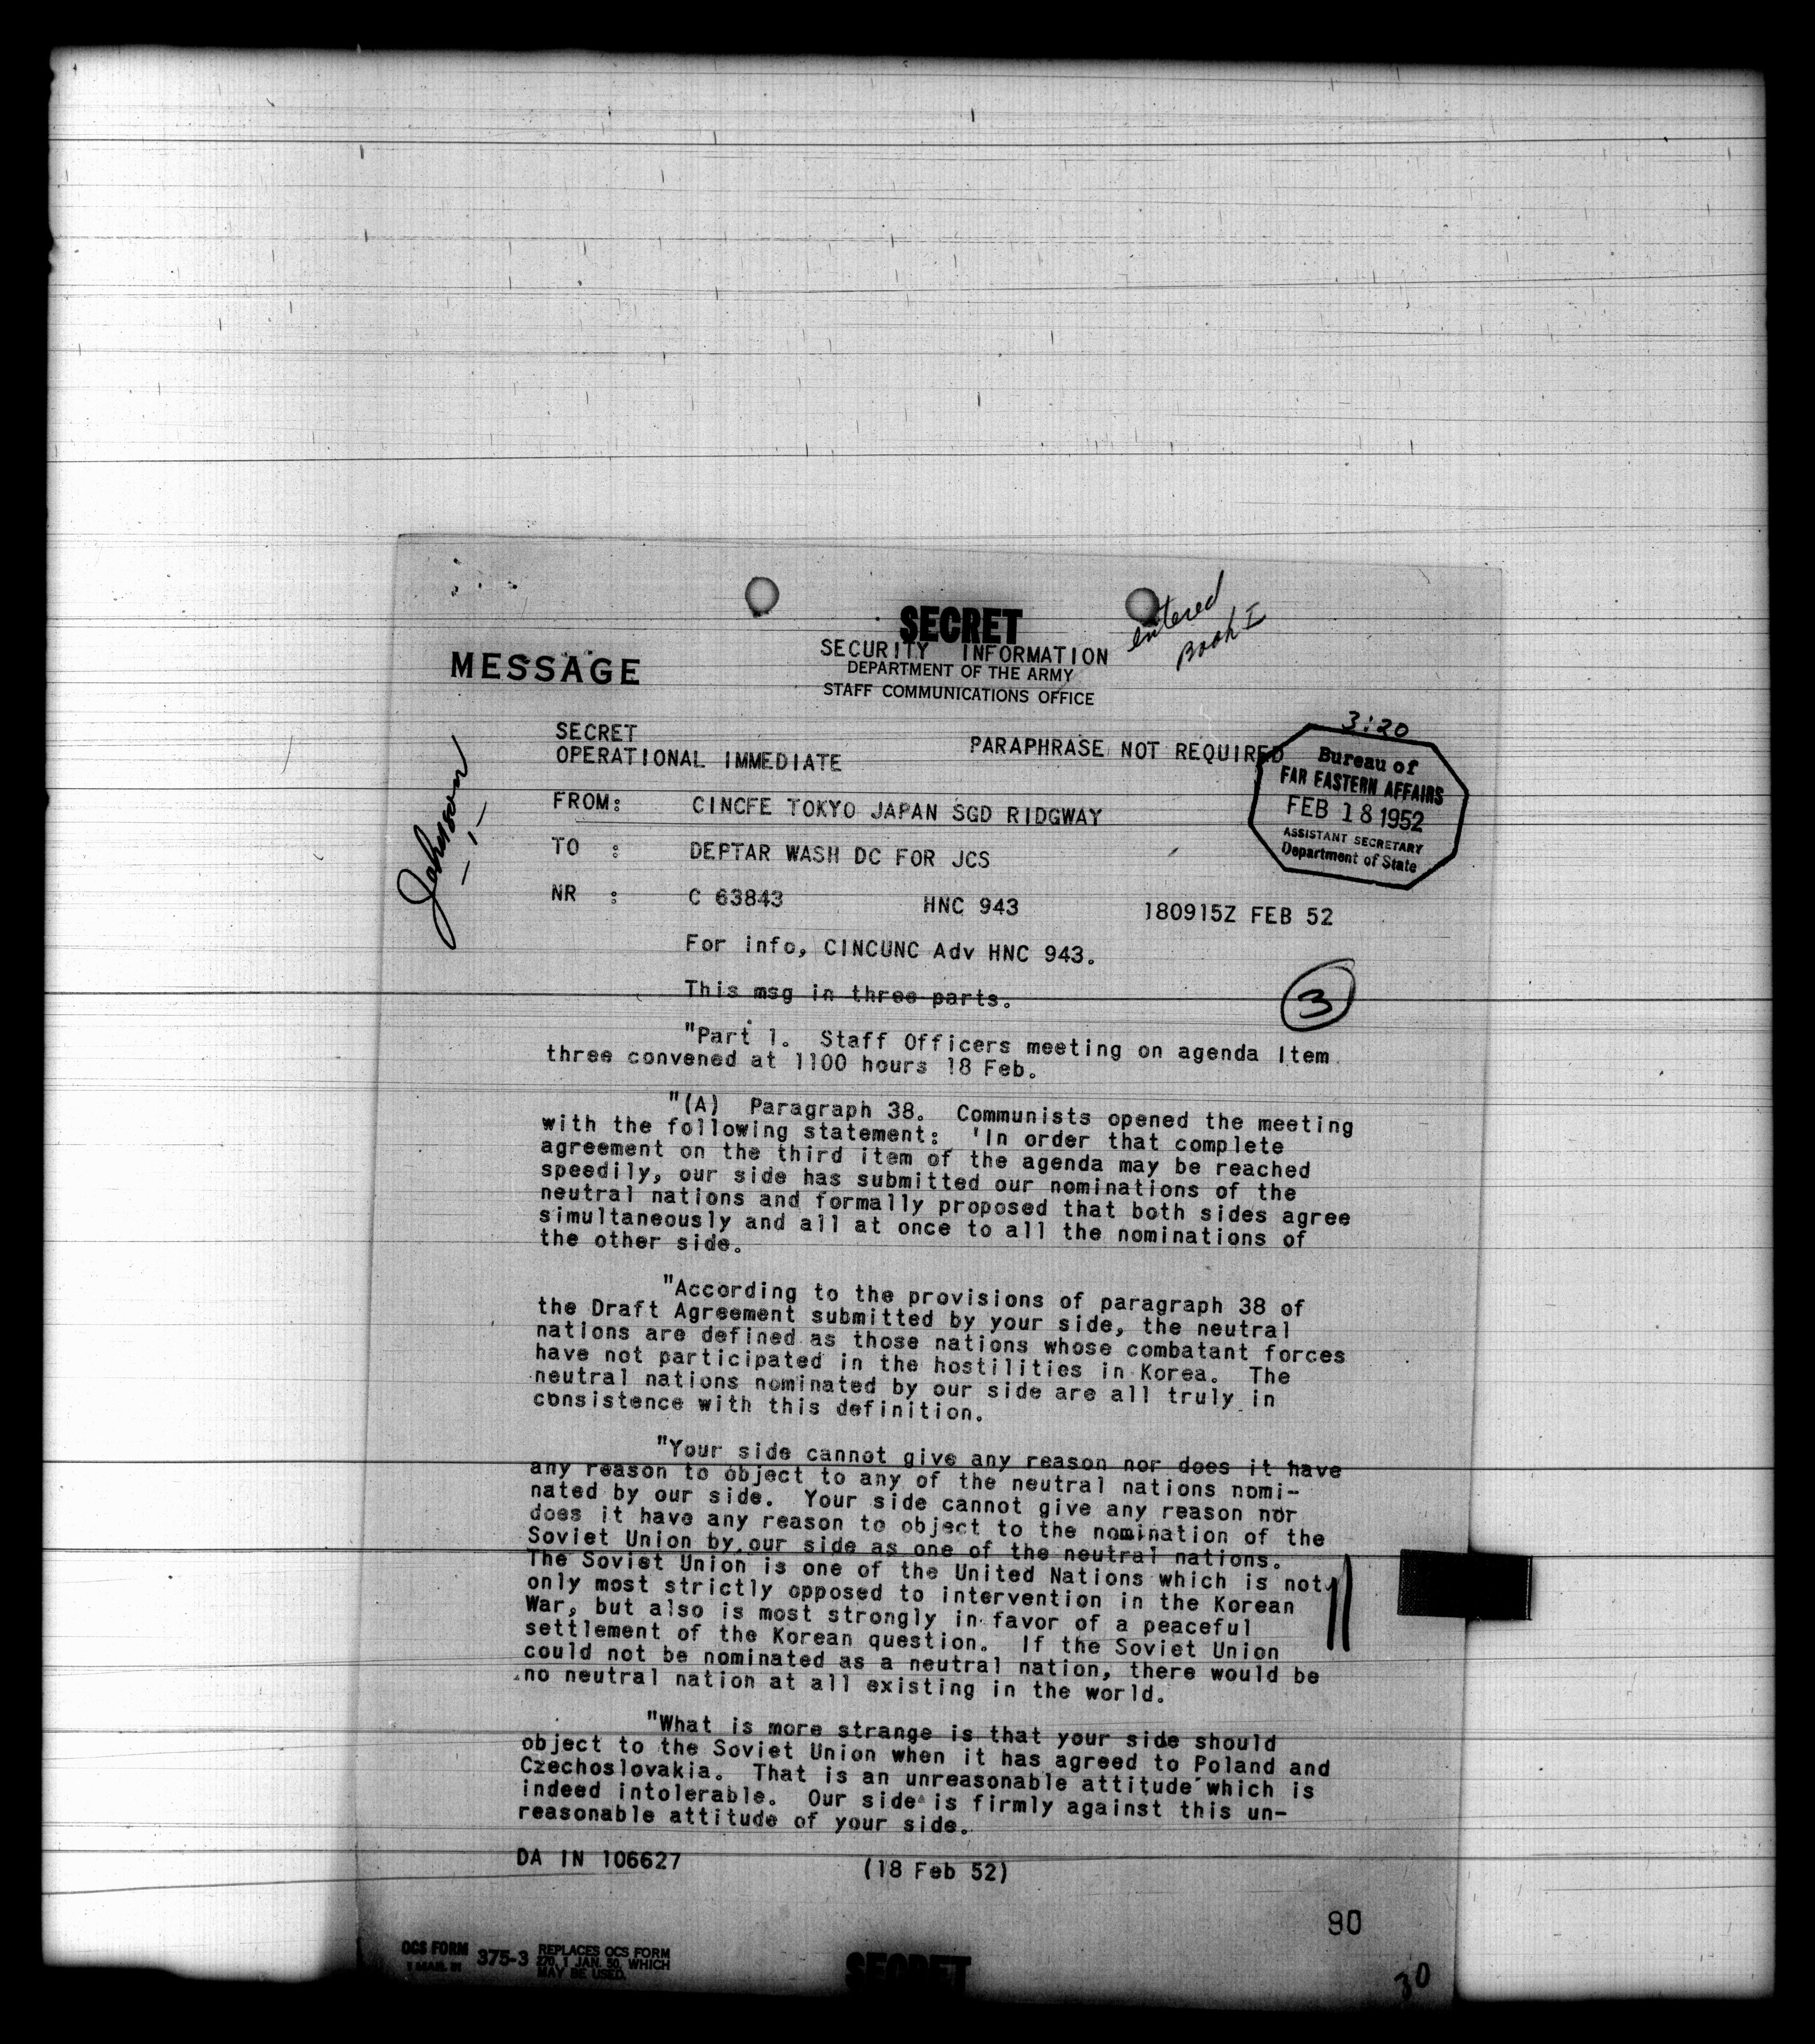 SECRET
entered
Book I
SECURITY INFORMATION
MESSAGE
DEPARTMENT OF THE ARMY
STAFF COMMUNICATIONS OFFICE
3:20
SECRET
PARAPHRASE NOT REQUIRED
OPERATIONAL IMMEDIATE
Bureau of
FAR EASTERN AFFAIRS
FEB 18 1952
ASSISTANT SECRETARY
Department of State
Johnson
FROM: CINCFE TOKYO JAPAN SGD RIDGWAY
TO : DEPTAR WASH DC FOR JCS
NR : C 63843 HNC 943 180915Z FEB 52
For info, CINCUNC Adv HNC 943.
This msg in three parts.
3
"Part 1. Staff Officers meeting on agenda Item
three convened at 1100 hours 18 Feb.
"(A) Paragraph 38. Communists opened the meeting
with the following statement: 'In order that complete
agreement on the third item of the agenda may be reached
speedily, our side has submitted our nominations of the
neutral nations and formally proposed that both sides agree
simultaneously and all at once to all the nominations of
the other side.
"According to the provisions of paragraph 38 of
the Draft Agreement submitted by your side, the neutral
nations are defined as those nations whose combatant forces
have not participated in the hostilities in Korea. The
neutral nations nominated by our side are all truly in
consistence with this definition.
"Your side cannot give any reason nor does it have
any reason to object to any of the neutral nations nomi-
nated by our side. Your side cannot give any reason nor
does it have any reason to object to the nomination of the
Soviet Union by our side as one of the neutral nations.
The Soviet Union is one of the United Nations which is not
only most strictly opposed to intervention in the Korean
War, but also is most strongly in favor of a peaceful
settlement of the Korean question. If the Soviet Union
could not be nominated as a neutral nation, there would be
no neutral nation at all existing in the world.
"What is more strange is that your side should
object to the Soviet Union when it has agreed to Poland and
Czechoslovakia. That is an unreasonable attitude which is
indeed intolerable. Our side is firmly against this un-
reasonable attitude of your side.
DA IN 106627 (18 Feb 52)
80
OCS FORM 375-3 REPLACES OCS FORM
270, 1 JAN. 50, WHICH
MAY BE USED.
SECRET
30